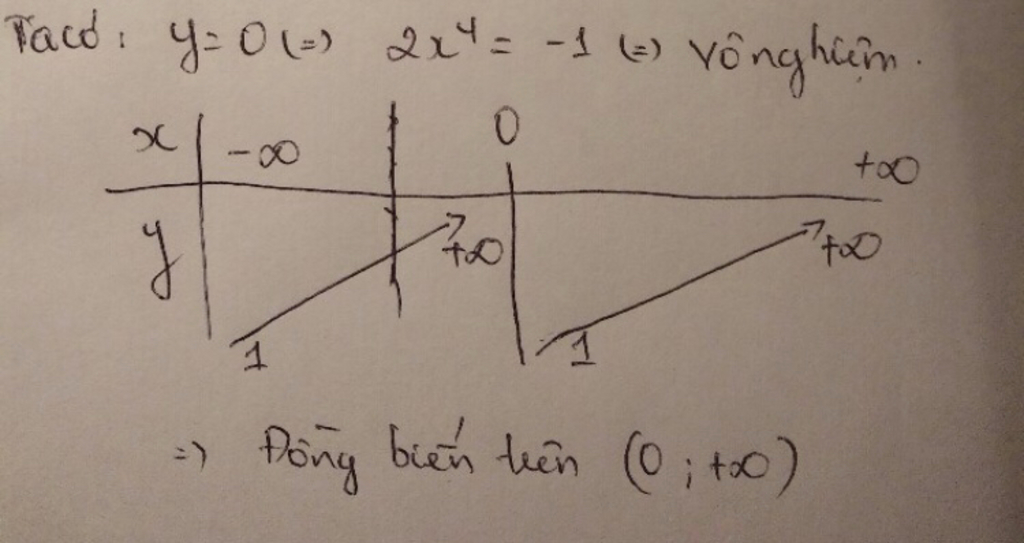 Ta có: y = 0 (=) 2x⁴ = -1 (=) Vô nghiệm.
x -∞ 0 +∞
y +∞ +∞
1 1
=) Đồng biến trên (0; +∞)